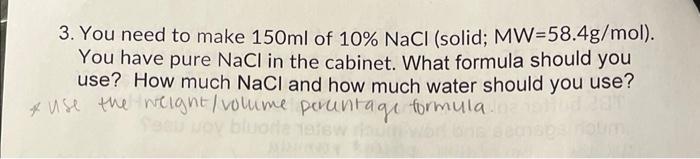 3. You need to make 150ml of 10% NaCl (solid; MW=58.4g/mol).
You have pure NaCl in the cabinet. What formula should you
use? How much NaCl and how much water should you use?
* use the weight/volume percentage formula.